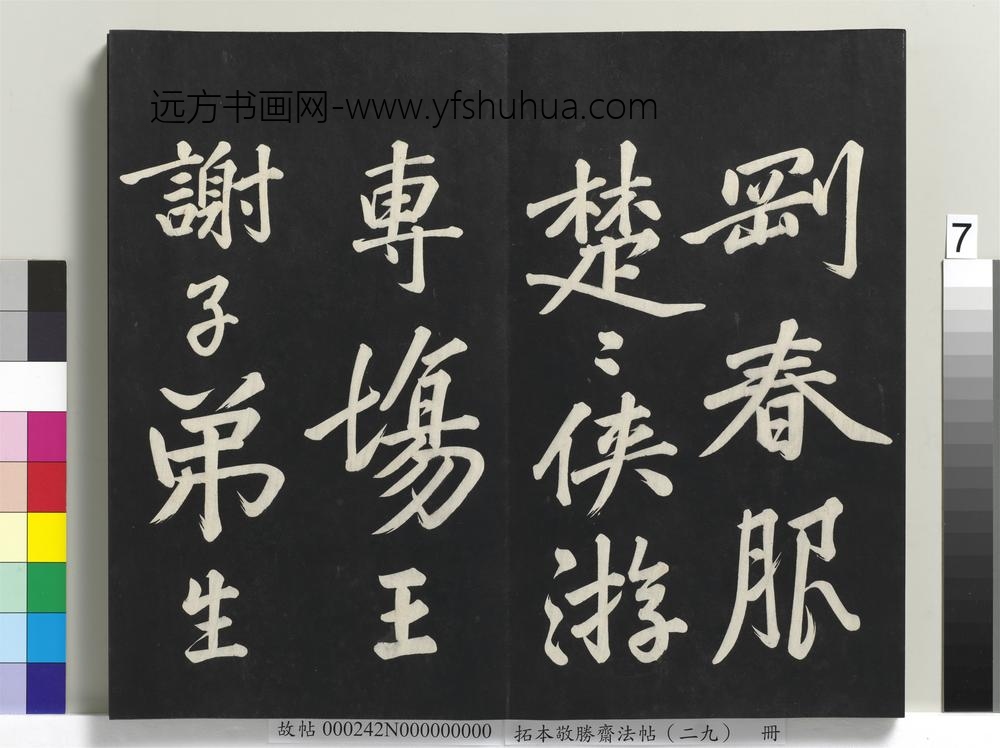 远方书画网-www.yfshuhua.com
剛春服
楚〻俠游
專場王
謝子弟生
7
故帖 000242N000000000
拓本敬勝齋法帖（二九） 冊